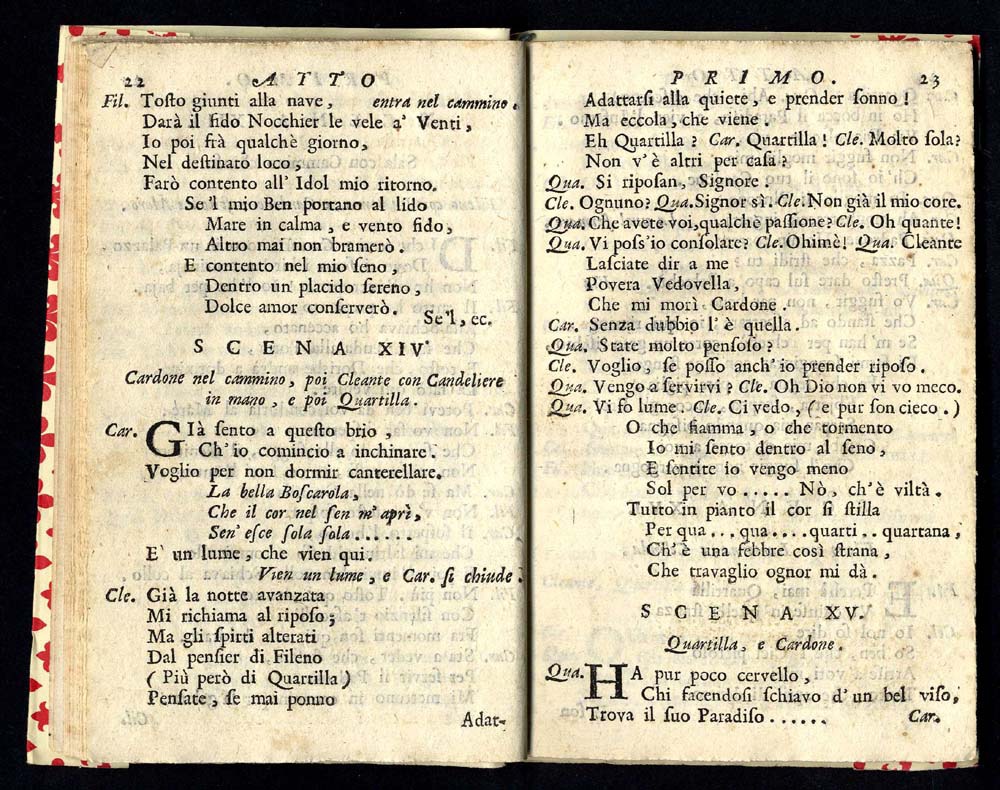 22 ATTO
Fil. Tosto giunti alla nave, entra nel cammine.
Darà il fido Nocchier le vele a' Venti,
Io poi frà qualchè giorno,
Nel destinato loco,
Farò contento all' Idol mio ritorno.
Se'l mio Ben portano al lido
Mare in calma, e vento fido,
Altro mai non bramerò.
E contento nel mio seno
Dentro un placido sereno,
Dolce amor conserverò.
Se'l, ec.
SCENA XIV.
Cardone nel cammino, poi Cleante con Candeliere
in mano, e poi Quartilla.
Car. GIà sento a questo brio,
Ch' io comincio a inchinare.
Voglio per non dormir canterellare.
La bella Boscarola,
Che il cor nel sen m' aprì,
Sen' esce sola sola......
E' un lume, che vien qui.
Vien un lume, e Car. si chiude.
Cle. Già la notte avanzata
Mi richiama al riposo;
Ma gli spirti alterati
Dal pensier di Fileno
(Più però di Quartilla)
Pensate, se mai ponno
Adat-
PRIMO. 23
Adattarsi alla quiete, e prender sonno!
Ma eccola, che viene.
Eh Quartilla? Car. Quartilla! Cle. Molto sola?
Non v'è altri per casa?
Qua. Si riposan, Signore.
Cle. Ognuno? Qua. Signor sì. Cle. Non già il mio core.
Qua. Che avete voi, qualchè passione? Cle. Oh quante!
Qua. Vi poss'io consolare? Cle. Ohimè! Qua. Cleante
Lasciate dir a me
Povera Vedovella,
Che mi morì Cardone.
Car. Senza dubbio l'è quella.
Qua. State molto pensoso?
Cle. Voglio, se posso anch'io prender riposo.
Qua. Vengo a servirvi? Cle. Oh Dio non vi vo meco.
Qua. Vi fo lume. Cle. Ci vedo, (e pur son cieco.)
O che fiamma, o che tormento
Io mi sento dentro al seno,
E sentite io vengo meno
Sol per vo..... Nò, ch'è viltà.
Tutto in pianto il cor si stilla
Per qua...qua....quarti..quartana,
Ch'è una febbre così strana,
Che travaglio ognor mi dà.
SCENA XV.
Quartilla, e Cardone.
Qua. HA pur poco cervello,
Chi facendosi schiavo d'un bel viso,
Trova il suo Paradiso......
Car.